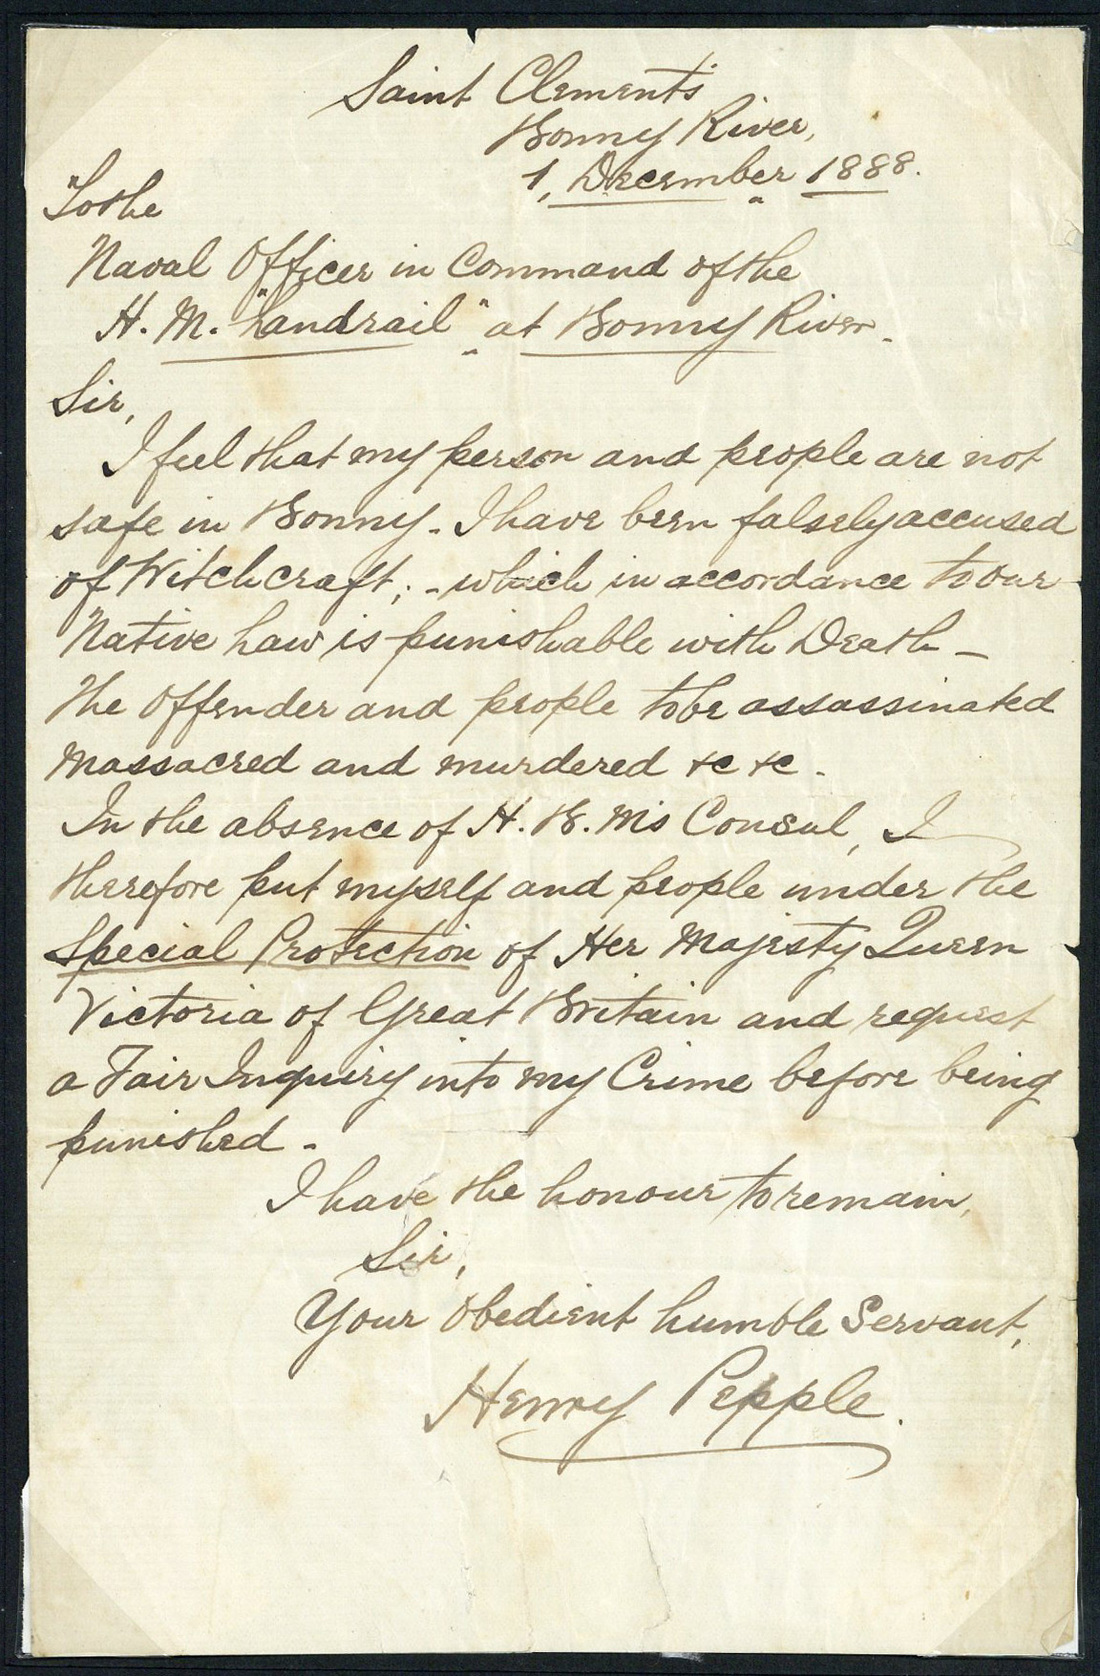 Saint Clements
Bonny River,
1, December 1888.
To the
Naval Officer in Command of the
H. M. "Landrail" at Bonny River.
Sir,
I feel that my person and people are not
safe in Bonny - I have been falsely accused
of Witchcraft; - which in accordance to our
Native Law is punishable with Death -
The Offender and people to be assassinated
Massacred and murdered &c &c -
In the absence of H. B. M's Consul, I
therefore put myself and people under the
Special Protection of Her Majesty Queen
Victoria of Great Britain and request
a Fair Inquiry into my Crime before being
punished -
I have the honour to remain,
Sir,
Your Obedient humble Servant,
Henry Pepple.